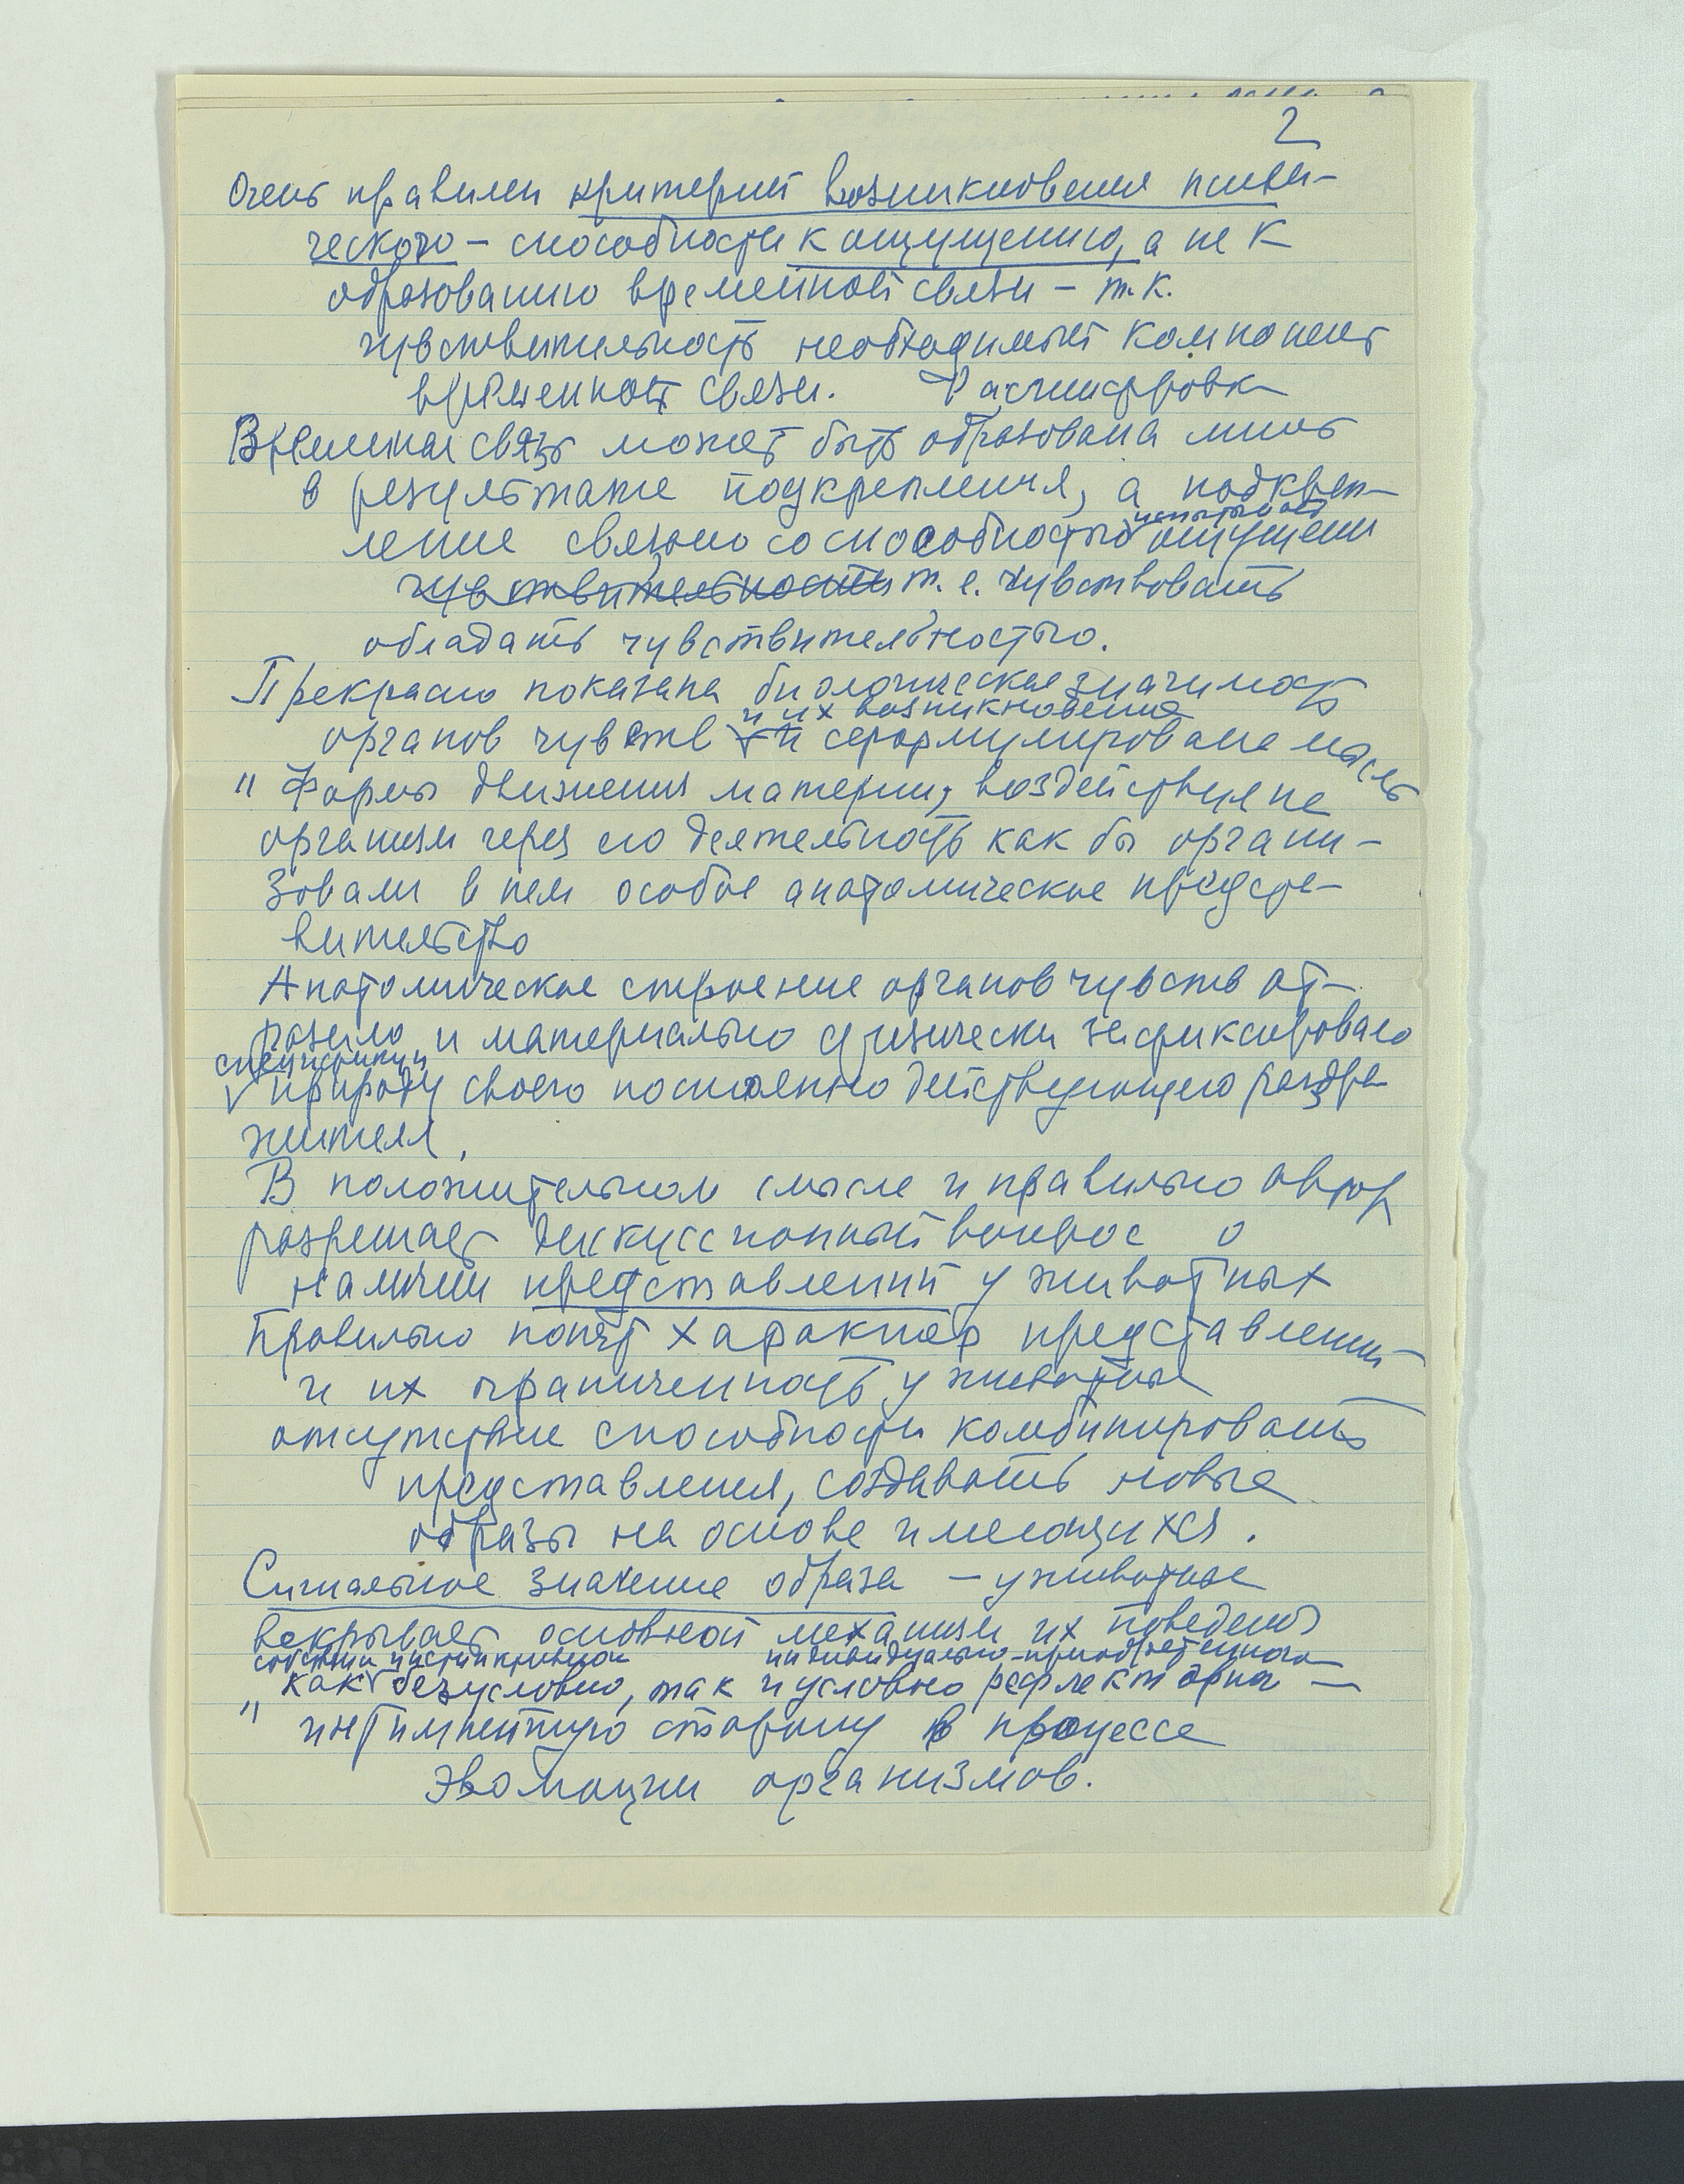 2
Очень правилен критерий возникновения психи-
ческого – способности к ощущению, а не к
образованию временной связи – т.к.
чувствительность необходимый компонент
временной связи. Расшифровка
Временная связь может быть образована лишь
в результате подкрепления, а подкреп-
ление связано со способностью испытывать ощущения
чувствительности т.е. чувствовать
обладать чувствительностью.
Прекрасно показана биологическая значимость
органов чувств и их возникновение и сформулирована мысль
" Формы движения материи, воздействуя на
организм через его деятельность как бы органи-
зовали в нем особое анатомическое предста-
вительство
Анатомическое строение органов чувств от-
разило и материально физически зафиксировало
специфику природу своего постоянно действующего раздра
жителя.
В положительном смысле и правильно автор
разрешает дискуссионный вопрос о
наличии представлений у животных
Правильно понят характер представлений
и их ограниченность у животных
отсутствие способности комбинировать
представления, создавать новые
образы на основе имеющихся.
Сигнальное значение образа – у животных
вскрывает основной механизм их поведения
как инстинктивной безусловно, так и индивидуально-приобретенного условно рефлекторного –
" интимную сторону в процессе
эволюции организмов.